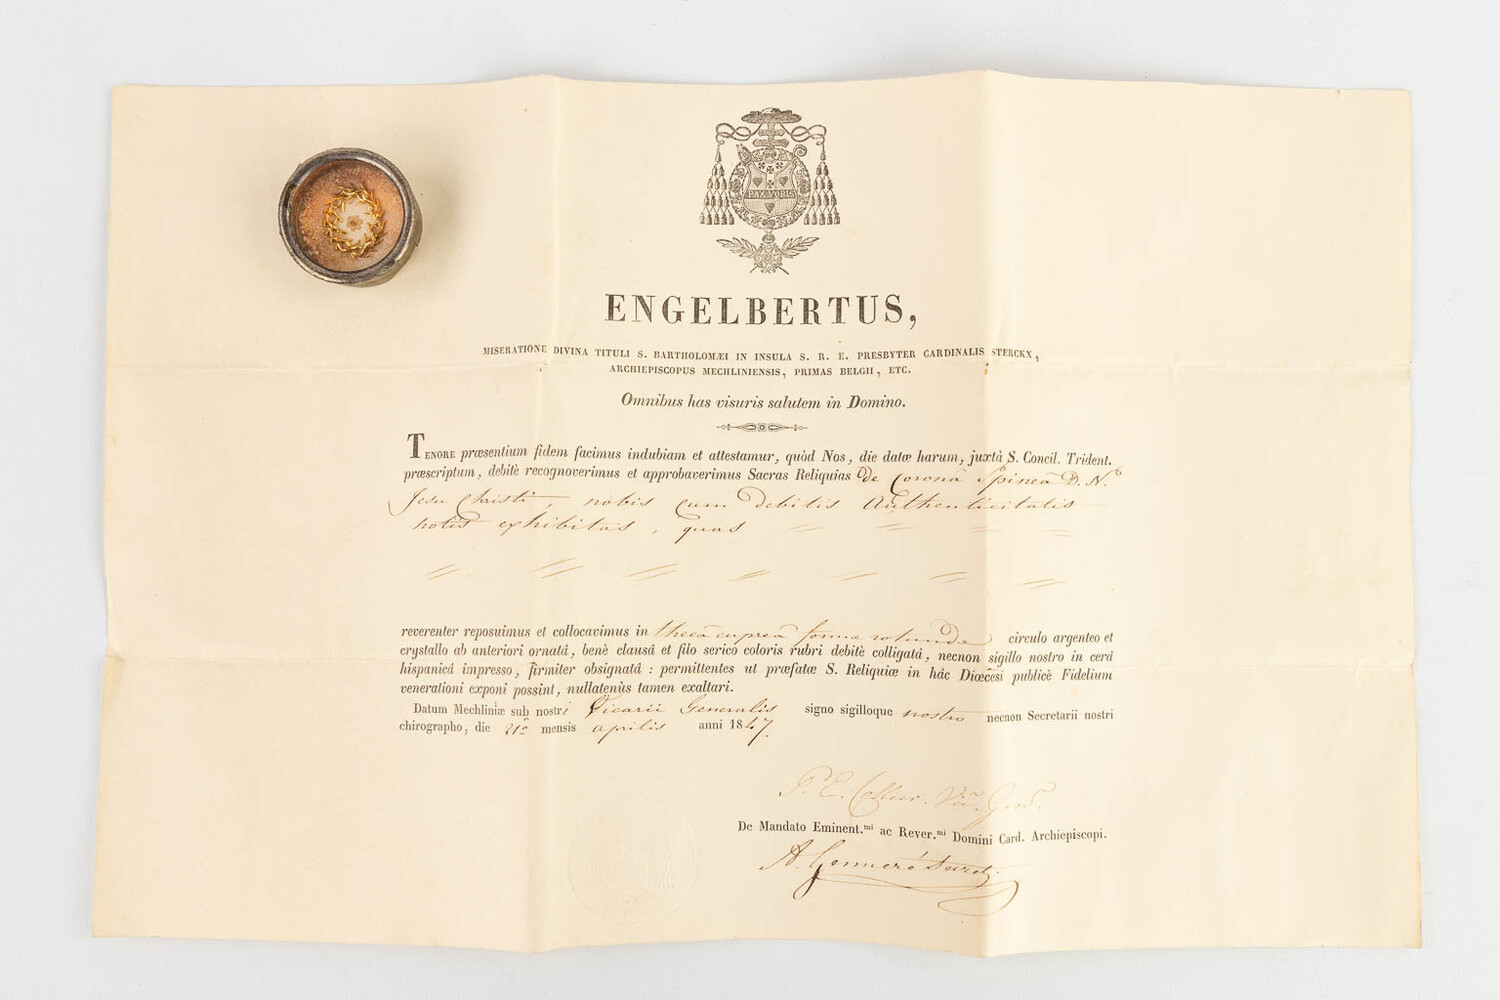 PAX VOBIS
ENGELBERTUS,
MISERATIONE DIVINA TITULI S. BARTHOLOMÆI IN INSULA S. R. E. PRESBYTER CARDINALIS STERCKX,
ARCHIEPISCOPUS MECHLINIENSIS, PRIMAS BELGII, ETC.
Omnibus has visuris salutem in Domino.
TENORE præsentium fidem facimus indubiam et attestamur, quòd Nos, die datæ harum, juxtà S. Concil. Trident.
præscriptum, debitè recognoverimus et approbaverimus Sacras Reliquias de Coronâ Spineâ D. N.
Jesu Christi, nobis cum debitis Authenticitatis
notis exhibitas, quas
reverenter reposuimus et collocavimus in thecâ cupreâ formæ rotundæ circulo argenteo et
crystallo ab anteriori ornatâ, benè clausâ et filo serico coloris rubri debitè colligatâ, necnon sigillo nostro in cerâ
hispanicâ impresso, firmiter obsignatâ : permittentes ut præfatæ S. Reliquiæ in hâc Diœcesi publicè Fidelium
venerationi exponi possint, nullatenùs tamen exaltari.
Datum Mechliniæ sub nostri Vicarii Generalis signo sigilloque nostro necnon Secretarii nostri
chirographo, die 21â mensis aprilis anni 1847.
P. E. Collier. Vic. Gen.
De Mandato Eminent.mi ac Rever.mi Domini Card. Archiepiscopi.
A. Genneré Secret.